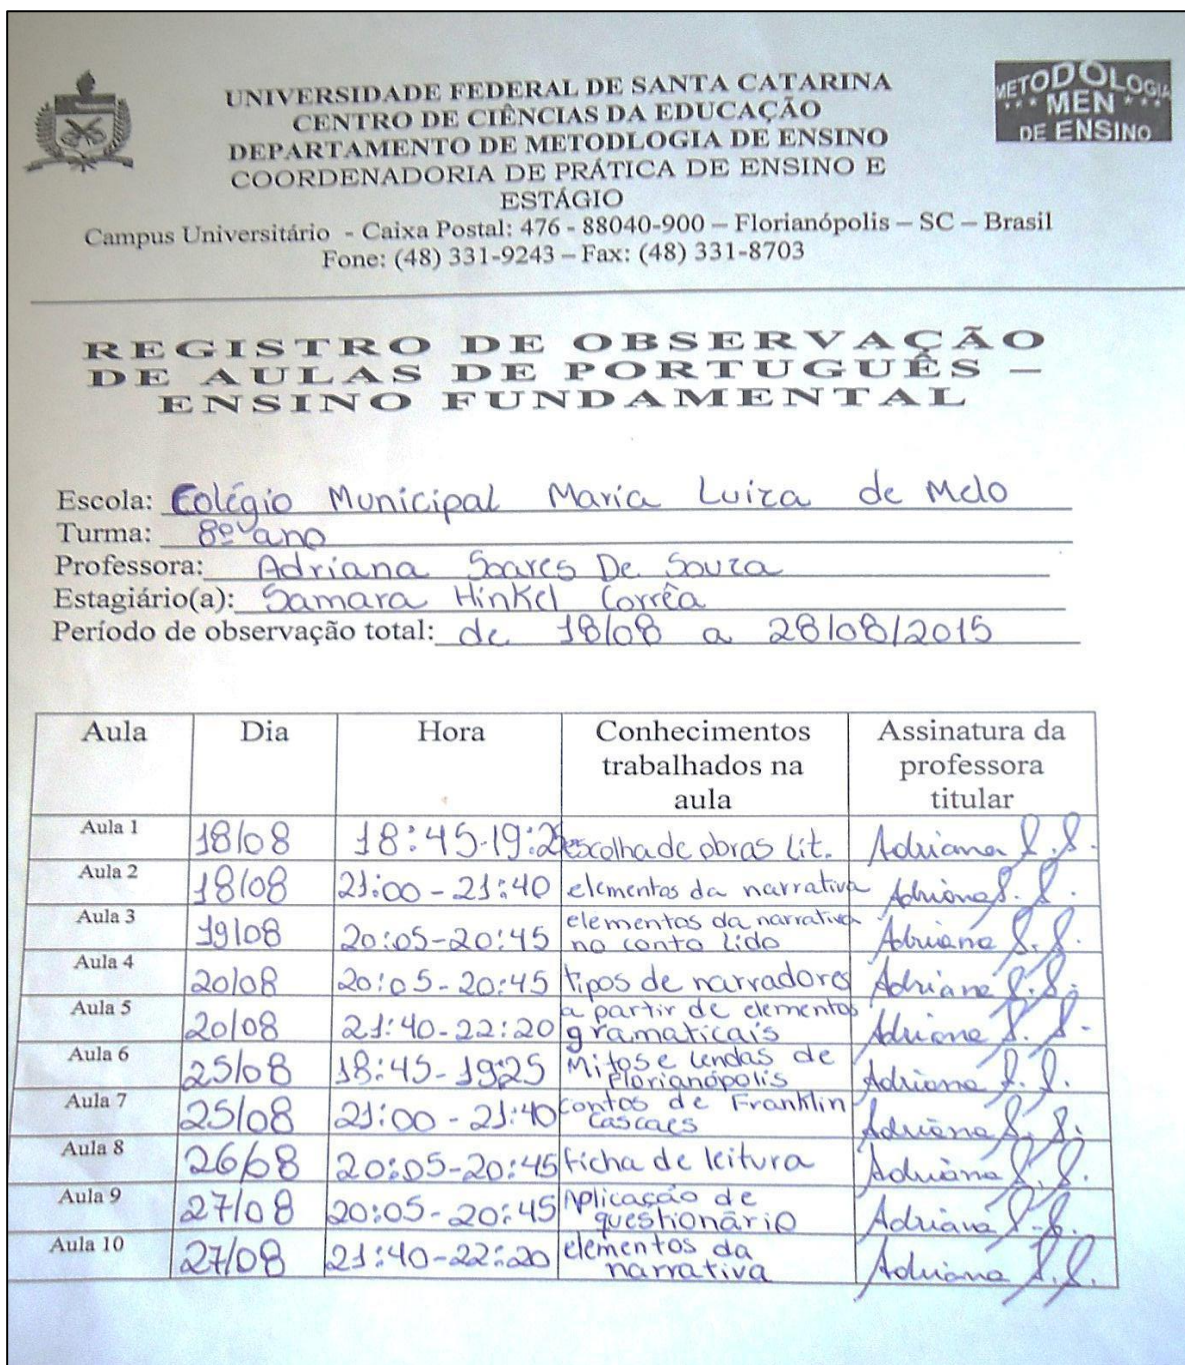 UNIVERSIDADE FEDERAL DE SANTA CATARINA
CENTRO DE CIÊNCIAS DA EDUCAÇÃO
DEPARTAMENTO DE METODLOGIA DE ENSINO
COORDENADORIA DE PRÁTICA DE ENSINO E
ESTÁGIO
METODOLOGIA
MEN
DE ENSINO
Campus Universitário - Caixa Postal: 476 - 88040-900 – Florianópolis – SC – Brasil
Fone: (48) 331-9243 – Fax: (48) 331-8703
REGISTRO DE OBSERVAÇÃO
DE AULAS DE PORTUGUÊS –
ENSINO FUNDAMENTAL
Escola: Colégio Municipal Maria Luiza de Melo
Turma: 8º ano
Professora: Adriana Soares De Souza
Estagiário(a): Samara Hinkel Corrêa
Período de observação total: de 18/08 a 28/08/2015
Aula Dia Hora Conhecimentos trabalhados na aula Assinatura da professora titular
Aula 1 18/08 18:45-19:25 escolha de obras lit. Adriana S.S.
Aula 2 18/08 21:00-21:40 elementos da narrativa Adriana S.S.
Aula 3 19/08 20:05-20:45 elementos da narrativa no conto lido Adriana S.S.
Aula 4 20/08 20:05-20:45 tipos de narradores Adriana S.S.
Aula 5 20/08 21:40-22:20 a partir de elementos gramaticais Adriana S.S.
Aula 6 25/08 18:45-19:25 Mitos e lendas de Florianópolis Adriana S.S.
Aula 7 25/08 21:00-21:40 contos de Franklin Cascaes Adriana S.S.
Aula 8 26/08 20:05-20:45 ficha de leitura Adriana S.S.
Aula 9 27/08 20:05-20:45 Aplicação de questionário Adriana S.S.
Aula 10 27/08 21:40-22:20 elementos da narrativa Adriana S.S.